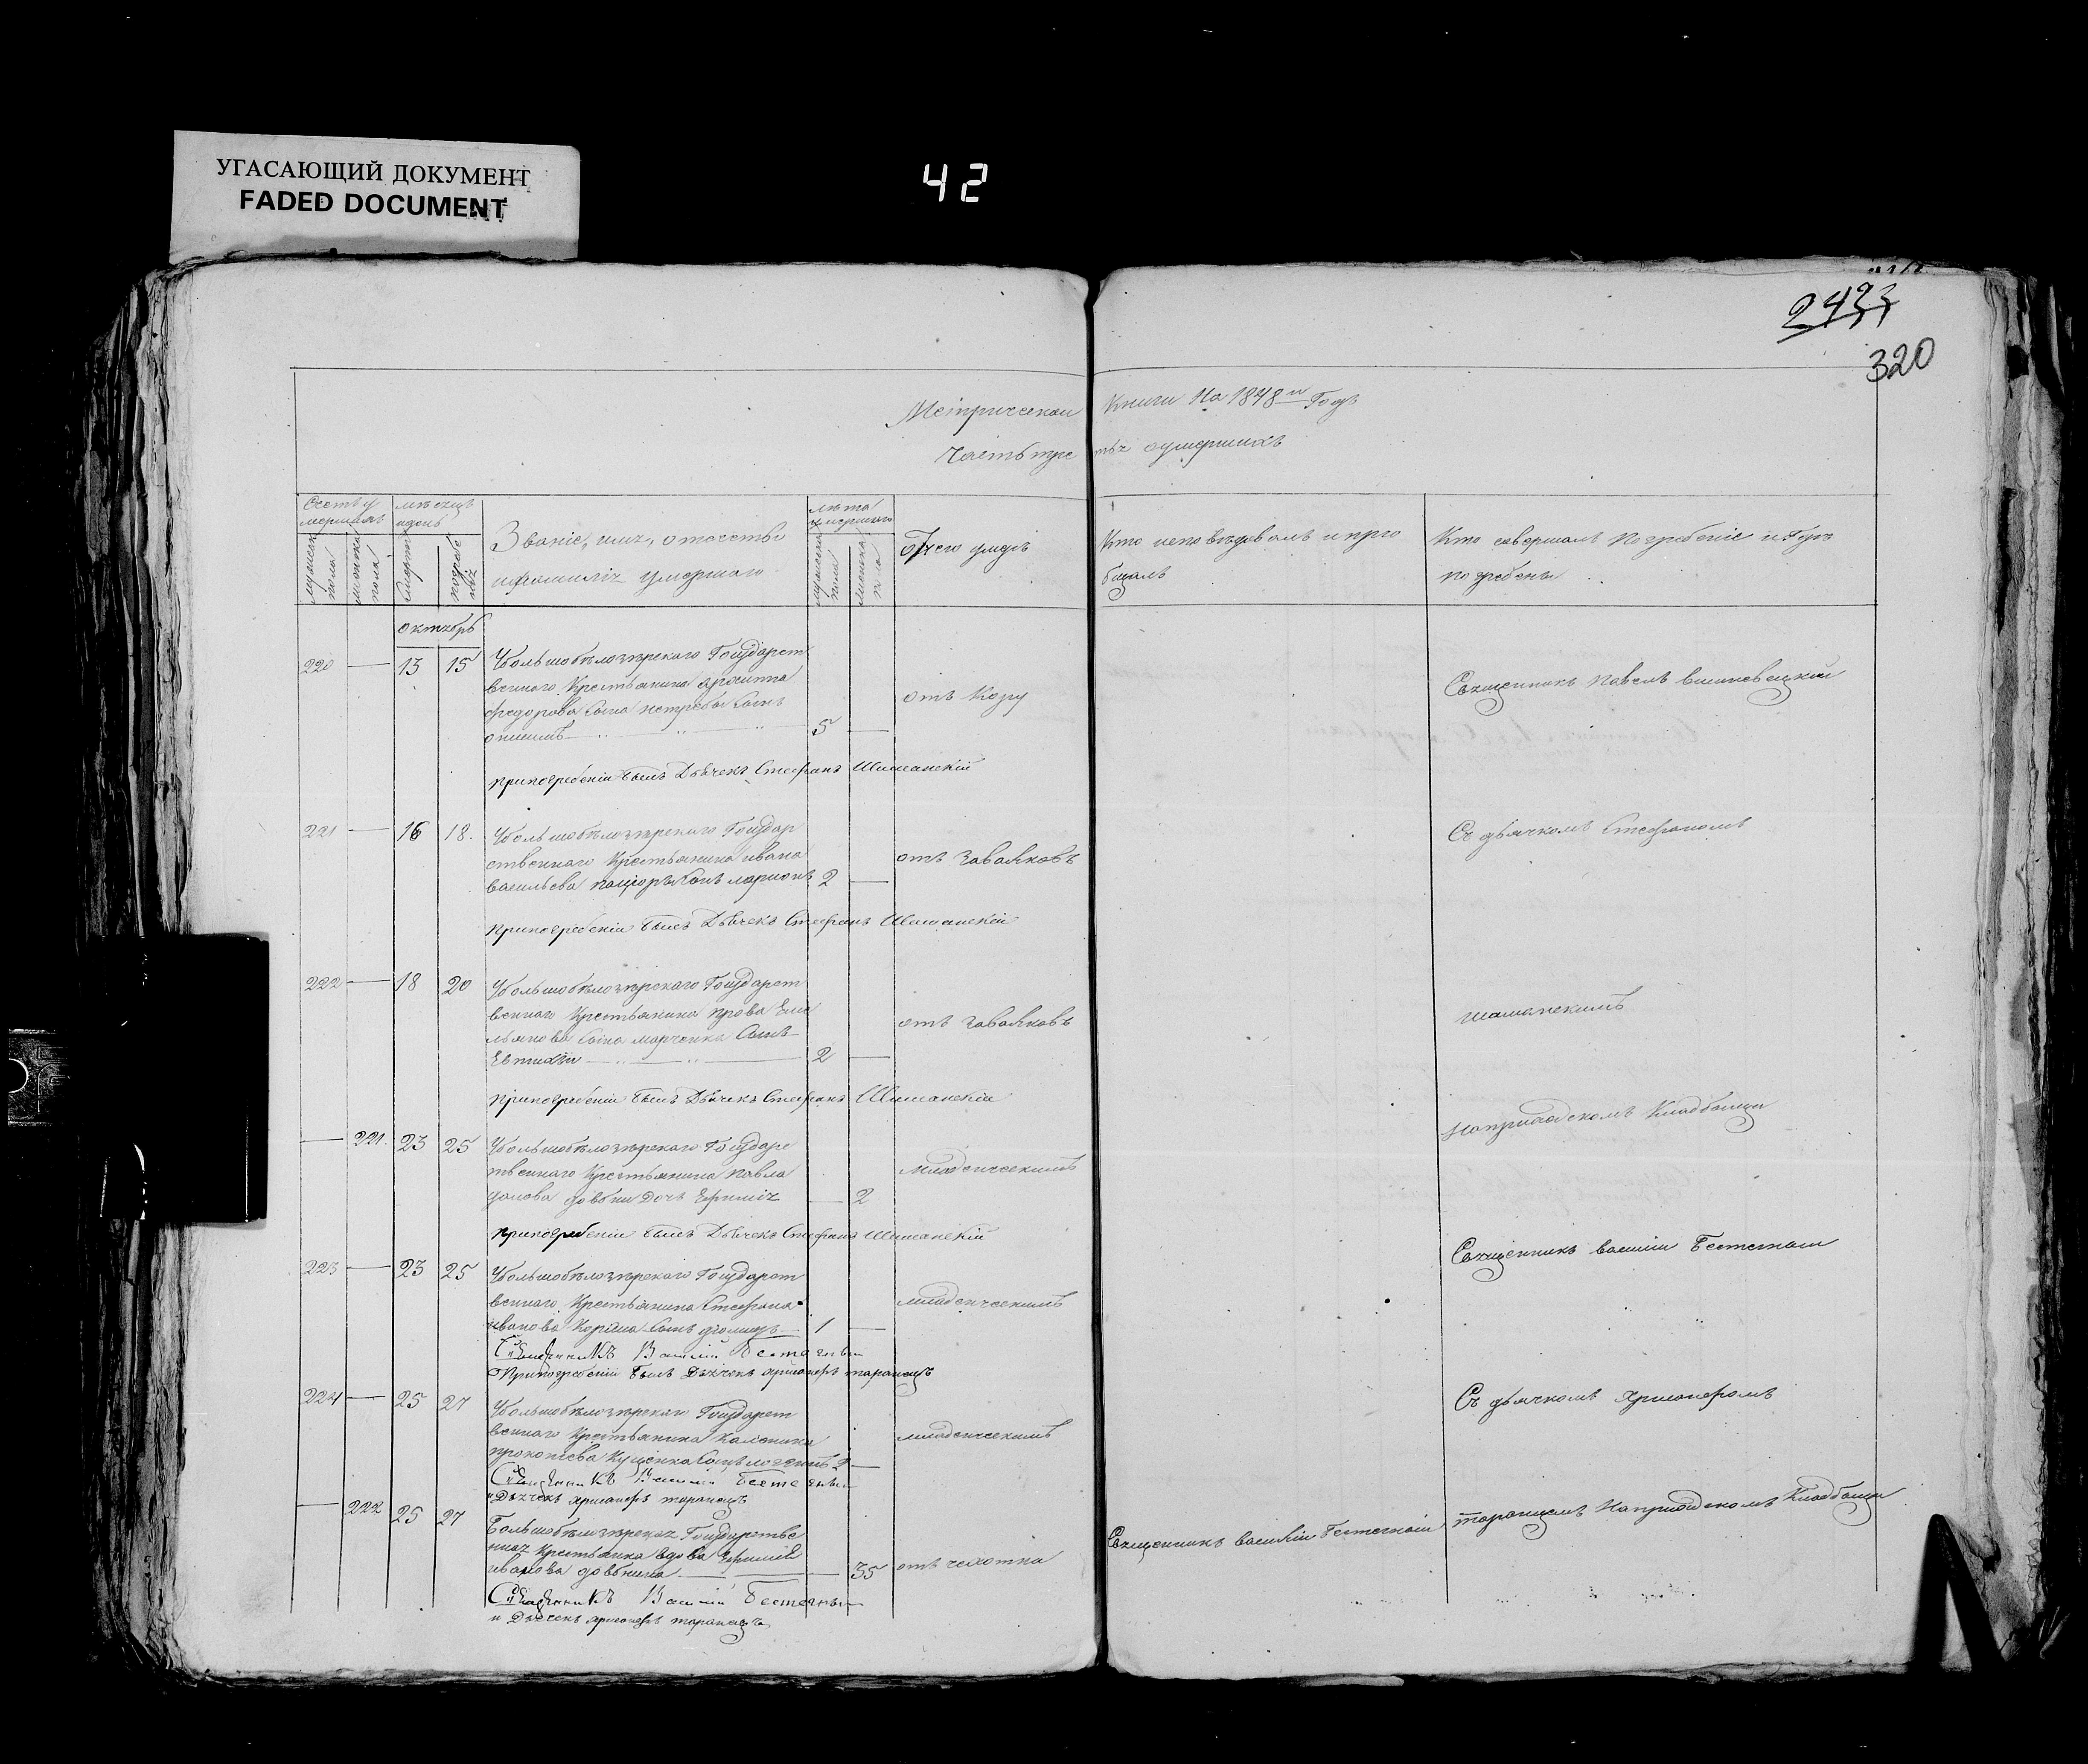 УГАСАЮЩИЙ ДОКУМЕНТ
FADED DOCUMENT
42
243
320
Метрической Книги На 1848й Годъ
Часть третья о умершихъ
Счетъ у
мершихъ
мужеска
пола
женска
пола
мѣсяцъ
и день
смерти
погребе
нія
Званіе, имя, отечество
и фамилія умершаго
лѣта
умершаго
мужеска
пола
женска
пола
Отчего умеръ
Кто исповѣдовалъ и прио
бщалъ
Кто совершалъ погребеніе и Гдѣ
погребены
октябрь
220 — 13 15
Убольшобѣлозѣрскаго Государст
веннаго Крестьянина
федорова Сына нетребы Сынъ
онисимъ 5 —
отъ Кору
Священникъ Павелъ Вишневецкій
при погребеніи былъ Дьячекъ Стефанъ Шиманскій
221 — 16 18.
Убольшобѣлозѣрскаго Государ
ственнаго Крестьянина ивана
васильева Сынъ ларионъ 2 —
отъ Заваловъ
Съ дьячкомъ Стефаномъ
при погребеніи былъ Дьячекъ Стефанъ Шиманскій
222 — 18 20
Убольшобѣлозѣрскаго Государст
веннаго Крестьянина прова Еме
льянова Сына марченка Сынъ
Евтихій 2 —
отъ Заваловъ
шиманскимъ
при погребеніи былъ Дьячекъ Стефанъ Шиманскій
На приходскомъ Кладбищи
— 221. 23 25
Убольшобѣлозѣрскаго Государс
твеннаго Крестьянина Павла
довбни Дочь Ефимія — 2
младенческимъ
при погребеніи былъ Дьячекъ Стефанъ Шиманскій
Священникъ василій Бестегный
223 — 23 25
Убольшобѣлозѣрскаго Государст
веннаго Крестьянина Стефана
иванова Сынъ 1 —
младенческимъ
Священникъ Василій Бестегный
При погребеніи былъ Дьячекъ ярмолеръ таранецъ
224 — 25 27
Убольшобѣлозѣрскаго Государст
веннаго Крестьянина калиника
прокопіева Куценка Сынъ 2 —
младенческимъ
Съ дьячкомъ
Священникъ Василій Бестегный
и Дьячекъ таранецъ
— 222 25 27
Большобѣлозѣрская Государстве
нная Крестьянка вдова Ефимія
иванова довбнина — 35
отъ чахотки
Священникъ василій Бестегный
таранцемъ На приходскомъ Кладбищи
Священникъ Василій Бестегный
и Дьячекъ таранецъ